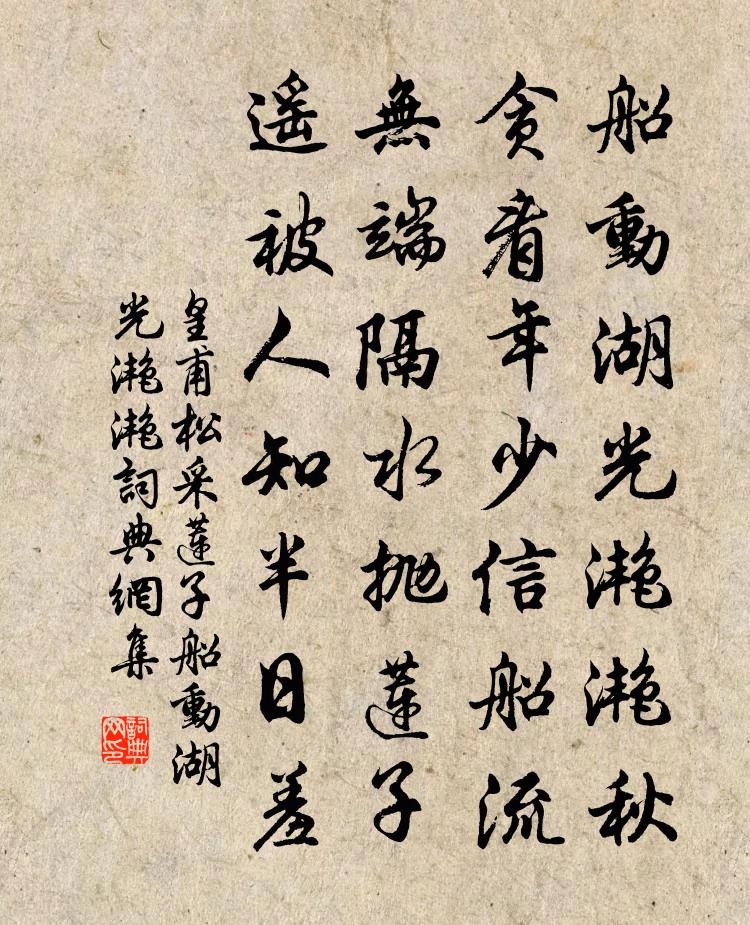 船動湖光灔灔秋
貪看年少信船流
無端隔水拋蓮子
遥被人知半日羞
皇甫松采蓮子船動湖
光灔灔詞典網集
詞典
网印